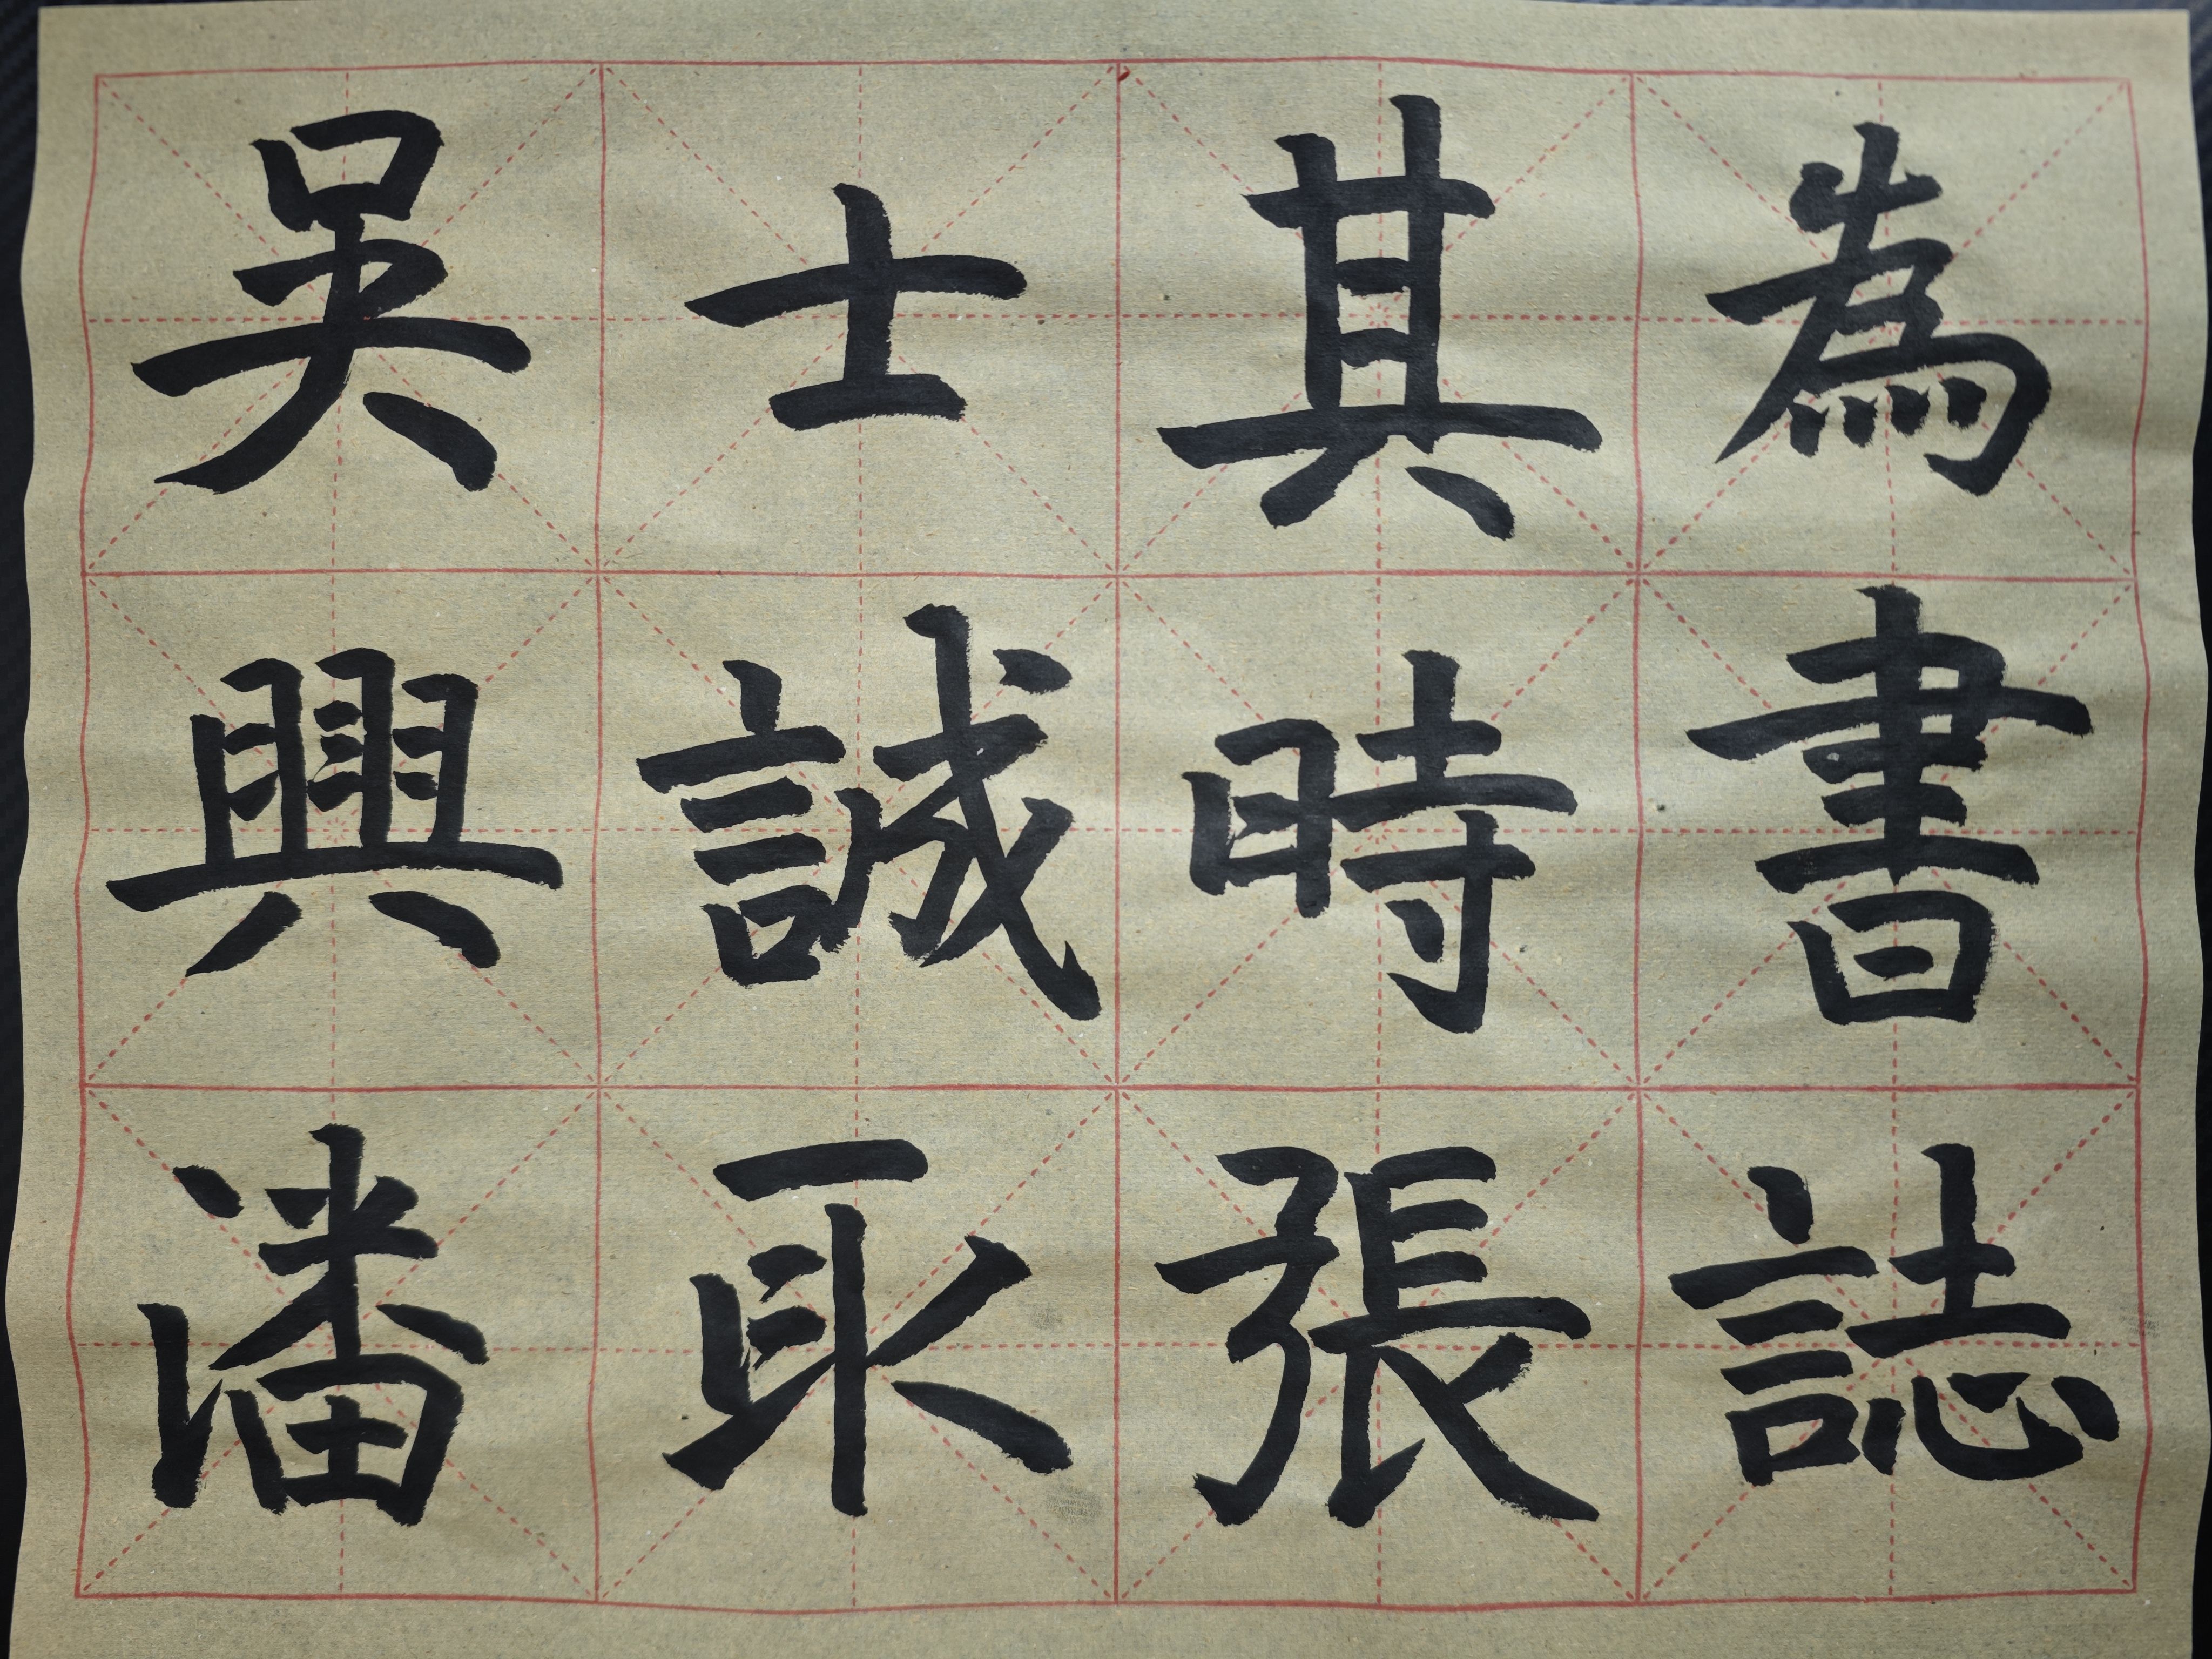 為書誌
其時張
士誠取
吳興潘